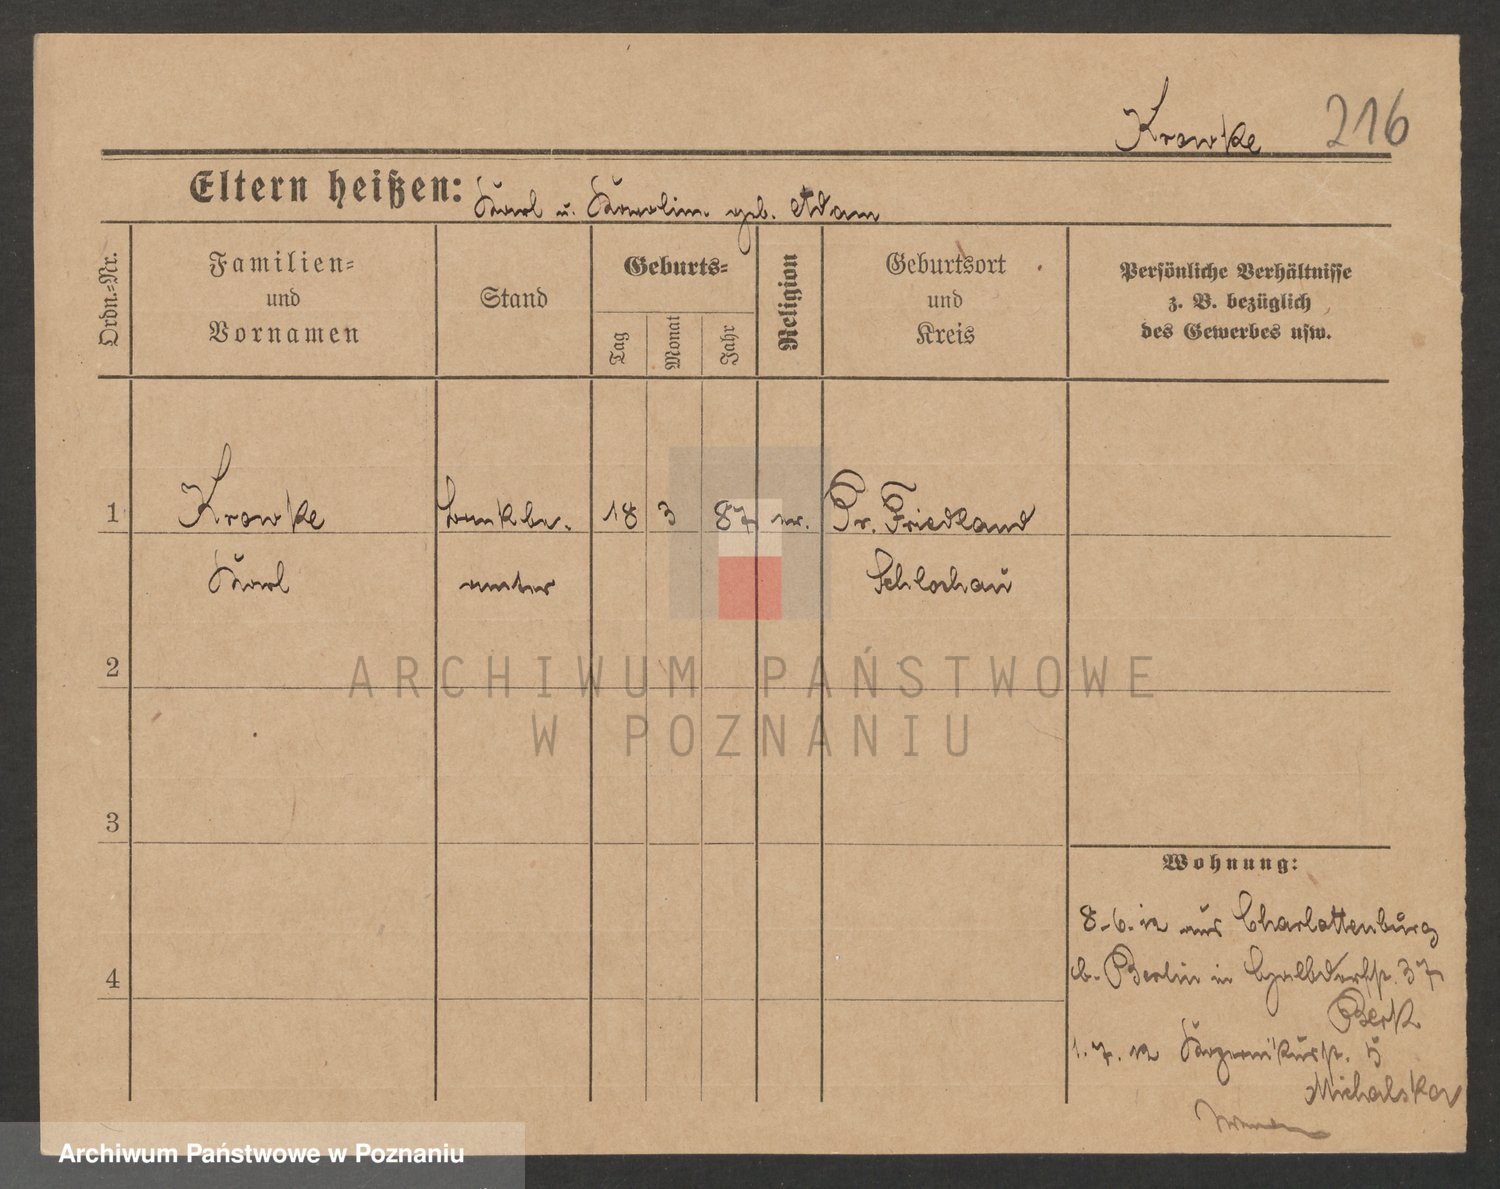 Krowke 216
Eltern heißen: Karl u. Karolin. geb. Adam
Ordn.=Nr.
Familien=
und
Vornamen
Stand
Geburts=
Tag
Monat
Jahr
Religion
Geburtsort
und
Kreis
Persönliche Verhältnisse
z. B. bezüglich
des Gewerbes usw.
1 Krowke Bankbe. 18 3 87 ev. Pr. Friedland
Karl amter Schlochau
2
ARCHIWUM PAŃSTWOWE
W POZNANIU
3
Wohnung:
8.6.12 aus Charlottenburg
b. Berlin in 37
4
Berk
1.7.12 5
Michalska
Archiwum Państwowe w Poznaniu